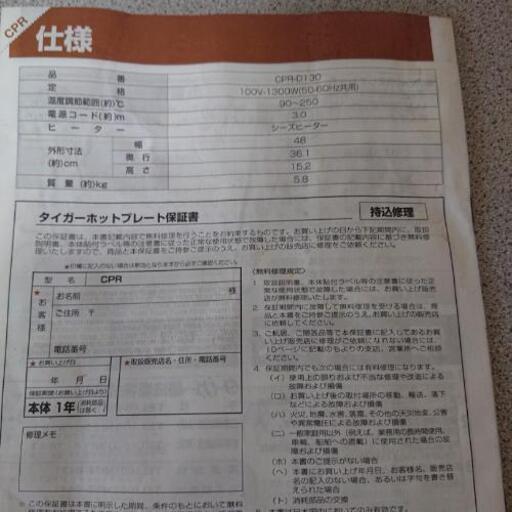 CPR
仕様
品番 CPR-D130
定格 100V-1300W(50-60Hz共用)
温度調節範囲(約)℃ 90~250
電源コード(約)m 3.0
ヒーター シーズヒーター
外形寸法(約)cm 幅 48
奥行 36.1
高さ 15.2
質量(約)kg 5.8
タイガーホットプレート保証書
持込修理
この保証書は、本書記載内容で無料修理を行うことをお約束するものです。お買い上げの日から下記期間内に、取扱
説明書、本体貼付ラベル等の注意書に従った正常な使用状態で故障した場合には、保証書の記載内容に基づき無料修
理いたしますので、商品と本書をご持参ご提示のうえ、お買い上げの販売店に修理をご依頼ください。
型名 CPR
★お客様
お名前 様
ご住所 〒
電話番号
★お買い上げ日
年 月 日
保証期間(お買い上げ日より)
本体 1年
消耗部品は除く
★取扱販売店名・住所・電話番号
修理メモ
〈無料修理規定〉
1. 取扱説明書、本体貼付ラベル等の注意書に従った正
常な使用状態で故障した場合には、お買い上げ販売
店が無料修理いたします。
2. 保証期間内に故障して無料修理を受ける場合は、商
品と本書をご持参ご提示のうえ、お買い上げの販売店
に依頼してください。
3. ご転居、ご贈答品等で本保証書に記入してあるお買
い上げ販売店に修理がご依頼になれない場合には、
4. 保証期間内でも次の場合には有料修理になります。
(イ) 使用上の誤りおよび不当な修理や改造による
故障および損傷
(ロ) お買い上げ後の取付場所の移動、輸送、落下
などによる故障および損傷
(ハ) 火災、地震、水害、落雷、その他の天災地変、公害
や異常電圧による故障および損傷
(ニ) 一般家庭用以外(例えば、業務用の長時間使用、
車輌、船舶への搭載)に使用された場合の故
障および損傷
(ホ) 本書のご提示がない場合
(ヘ) 本書にお買い上げ年月日、お客様名、販売店
名の記入のない場合、あるいは字句を書き替
えられた場合
(ト) 消耗部品の交換
※この保証書は本書に明示した期間、条件のもとにおいて無料